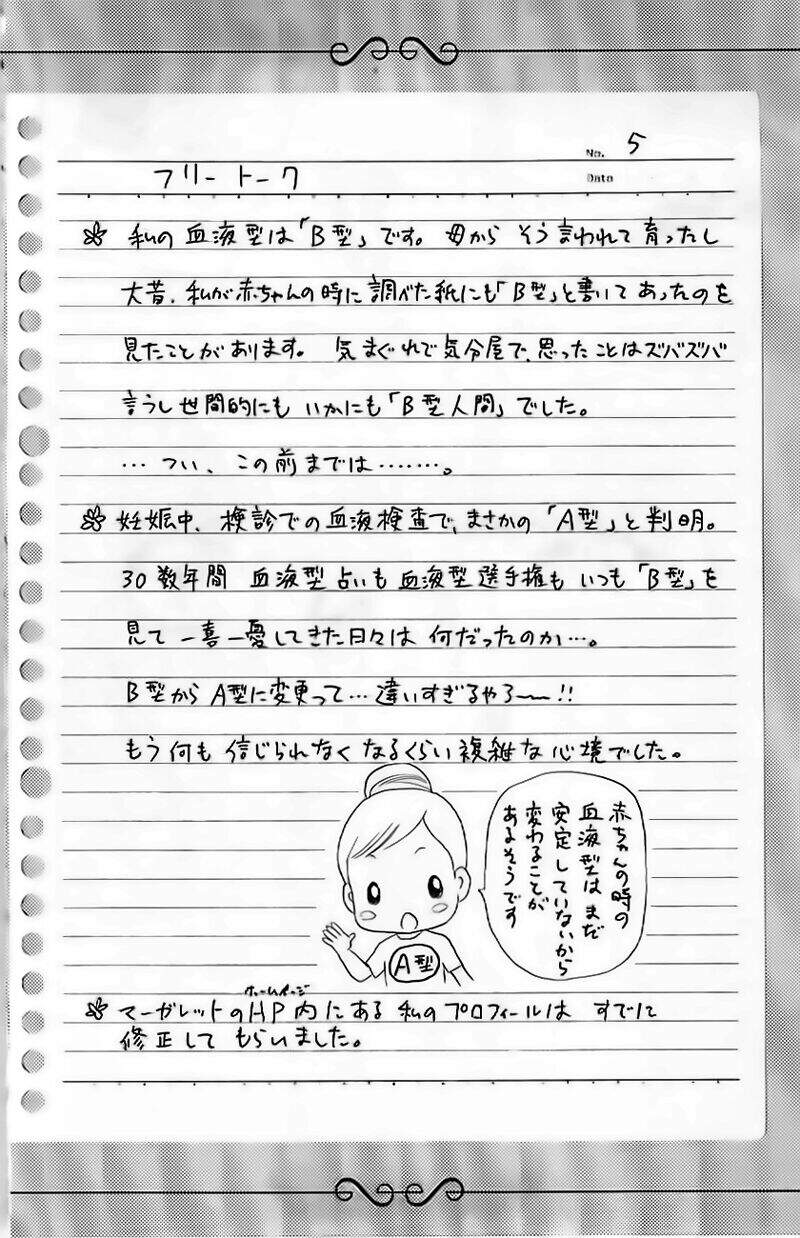 No. 5
フリートーク
Data
私の血液型は「B型」です。母からそう言われて育ったし
大昔、私が赤ちゃんの時に調べた紙にも「B型」と書いてあったのを
見たことがあります。気まぐれで気分屋で、思ったことはズバズバ
言うし世間的にもいかにも「B型人間」でした。
…つい、この前までは………。
妊娠中、検診での血液検査で、まさかの「A型」と判明。
30数年間 血液型占いも血液型選手権もいつも「B型」を
見て一喜一憂してきた日々は何だったのか…。
B型からA型に変更って…違いすぎるやろ〜!!
もう何も信じられなくなるくらい複雑な心境でした。
赤ちゃんの時の
血液型はまだ
安定していないから
変わることが
あるそうです
A型
ホームページ
マーガレットのHP内にある私のプロフィールはすでに
修正してもらいました。